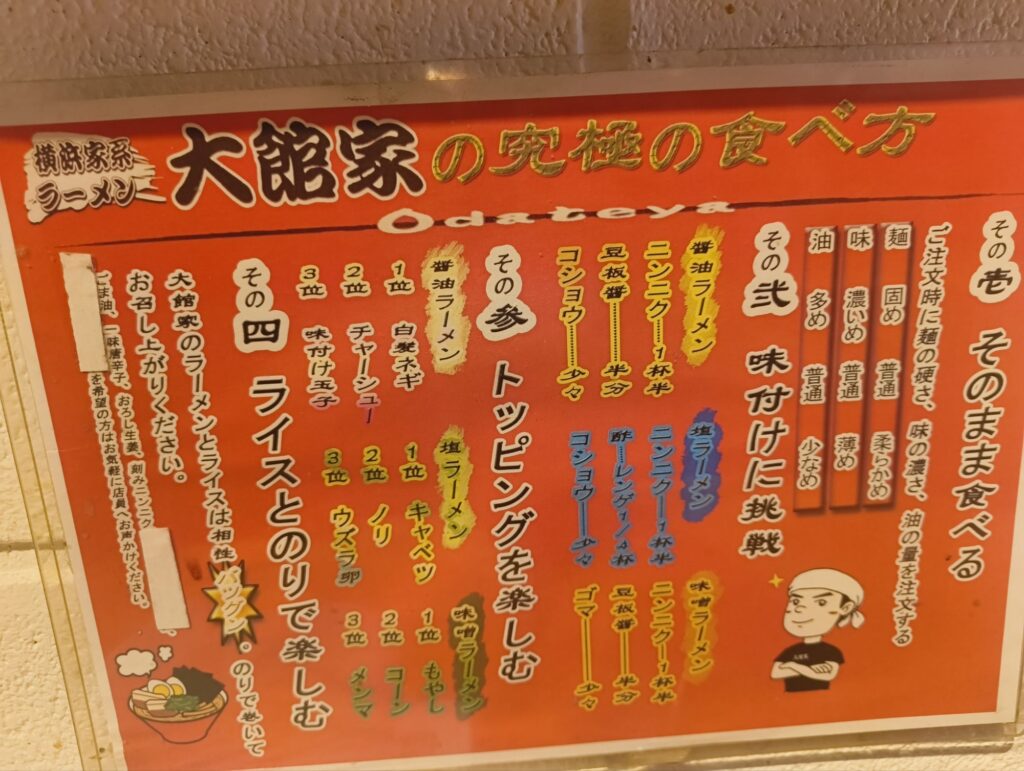 横浜家系
ラーメン
大館家の究極の食べ方
Odateya
その壱 そのまま食べる
ご注文時に麺の硬さ、味の濃さ、油の量を注文する
麺 固め 普通 柔らかめ
味 濃いめ 普通 薄め
油 多め 普通 少なめ
その弐 味付けに挑戦
醤油ラーメン
ニンニク…1杯半
豆板醤…半分
コショウ…少々
塩ラーメン
ニンニク―1杯半
酢―レンゲ1/4杯
コショウ―少々
味噌ラーメン
ニンニク―1杯半
豆板醤―半分
ゴマ―少々
その参 トッピングを楽しむ
醤油ラーメン
1位 白髪ネギ
2位 チャーシュー
3位 味付け玉子
塩ラーメン
1位 キャベツ
2位 ノリ
3位 ウズラ卵
味噌ラーメン
1位 もやし
2位 コーン
3位 メンマ
その四 ライスとのりで楽しむ
大館家のラーメンとライスは相性バツグン。のりで巻いて
お召し上がりください。
ごま油、一味唐辛子、おろし生姜、刻みニンニク
を希望の方はお気軽に店員へお声かけください。